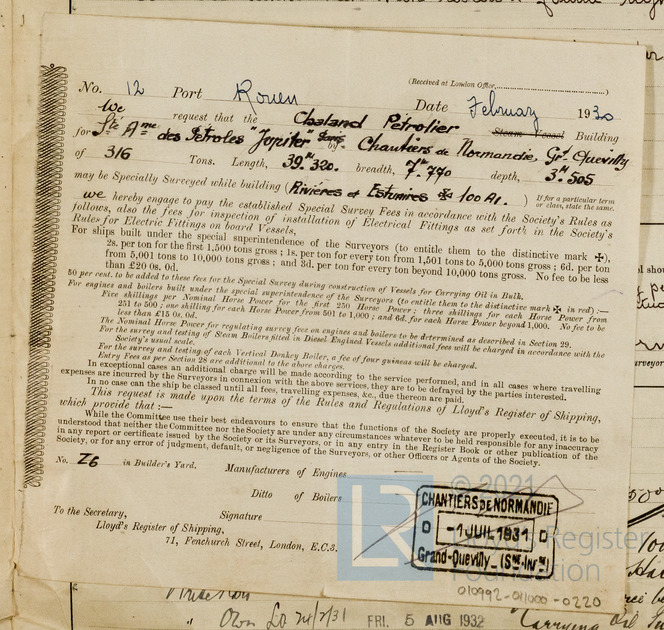 (Received at London Office,
No. 12 Port Rouen Date February 1930
We request that the Chaland Pétrolier Steam Vessel Building
for Sté Ame des Pétroles "Jupiter" by Chantiers de Normandie, Gd Quevilly
of 316 Tons. Length, 39m 320. breadth, 7m 770 depth, 3m 505
may be Specially Surveyed while building (Rivières et Estuaires ✠ 100 A1. ) If for a particular term or class, state the same.
we hereby engage to pay the established Special Survey Fees in accordance with the Society's Rules as
follows, also the fees for inspection of installation of Electrical Fittings as set forth in the Society's
Rules for Electric Fittings on board Vessels,
For ships built under the special superintendence of the Surveyors (to entitle them to the distinctive mark ✠),
2s. per ton for the first 1,500 tons gross ; 1s. per ton for every ton from 1,501 tons to 5,000 tons gross ; 6d. per ton
from 5,001 tons to 10,000 tons gross ; and 3d. per ton for every ton beyond 10,000 tons gross. No fee to be less
than £20 0s. 0d.
50 per cent. to be added to these fees for the Special Survey during construction of Vessels for Carrying Oil in Bulk.
For engines and boilers built under the special superintendence of the Surveyors (to entitle them to the distinctive mark ✠ in red) :—
Five shillings per Nominal Horse Power for the first 250 Horse Power ; three shillings for each Horse Power from
251 to 500 ; one shilling for each Horse Power from 501 to 1,000 ; and 6d. for each Horse Power beyond 1,000. No fee to be
less than £15 0s. 0d.
The Nominal Horse Power for regulating survey fees on engines and boilers to be determined as described in Section 29.
For the survey and testing of Steam Boilers fitted in Diesel Engined Vessels additional fees will be charged in accordance with the
Society's usual scale.
For the survey and testing of each Vertical Donkey Boiler, a fee of four guineas will be charged.
Entry Fees as per Section 28 are additional to the above charges.
In exceptional cases an additional charge will be made according to the service performed, and in all cases where travelling
expenses are incurred by the Surveyors in connexion with the above services, they are to be defrayed by the parties interested.
In no case can the ship be classed until all fees, travelling expenses, &c., due thereon are paid.
This request is made upon the terms of the Rules and Regulations of Lloyd's Register of Shipping,
which provide that :—
While the Committee use their best endeavours to ensure that the functions of the Society are properly executed, it is to be
understood that neither the Committee nor the Society are under any circumstances whatever to be held responsible for any inaccuracy
in any report or certificate issued by the Society or its Surveyors, or in any entry in the Register Book or other publication of the
Society, or for any error of judgment, default, or negligence of the Surveyors, or other Officers or Agents of the Society.
No. 26 in Builder's Yard. Manufacturers of Engines
Ditto of Boilers
To the Secretary, Signature
Lloyd's Register of Shipping,
71, Fenchurch Street, London, E.C.3.
LR © 2021
Lloyd's Register
Foundation
CHANTIERS DE NORMANDIE
-1 JUIL 1931
Grand-Quevilly - (Sne-Infre)
010992-011000-0220
FRI. 5 AUG 1932
"Carrying Oil